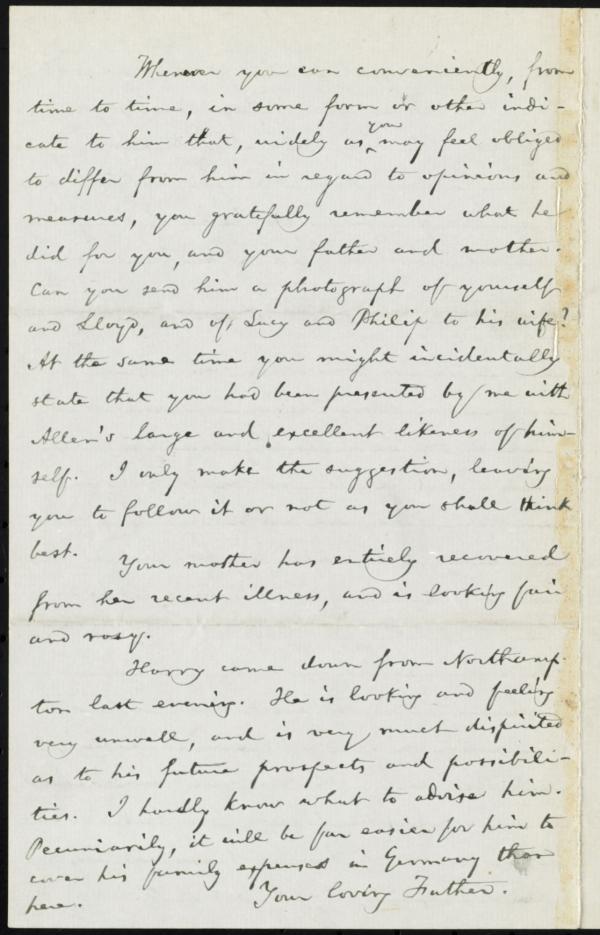 Whenever you can conveniently, from
time to time, in some form or other indi-
cate to him that, widely as you may feel obliged
to differ from him in regard to opinions and
measures, you gratefully remember what he
did for you, and your father and mother.
Can you send him a photograph of yourself
and Lloyd, and of Lucy and Philip to his wife?
At the same time you might incidentally
state that you had been presented by me with
Allen's large and excellent likeness of him-
self. I only make the suggestion, leaving
you to follow it or not as you shall think
best.
Your mother has entirely recovered
from her recent illness, and is looking fair
and rosy.
Harry came down from Northamp-
ton last evening. He is looking and feeling
very unwell, and is very much dispirited
as to his future prospects and possibili-
ties. I hardly know what to advise him.
Pecuniarily, it will be far easier for him to
cover his family expenses in Germany than
here.
Your loving Father.